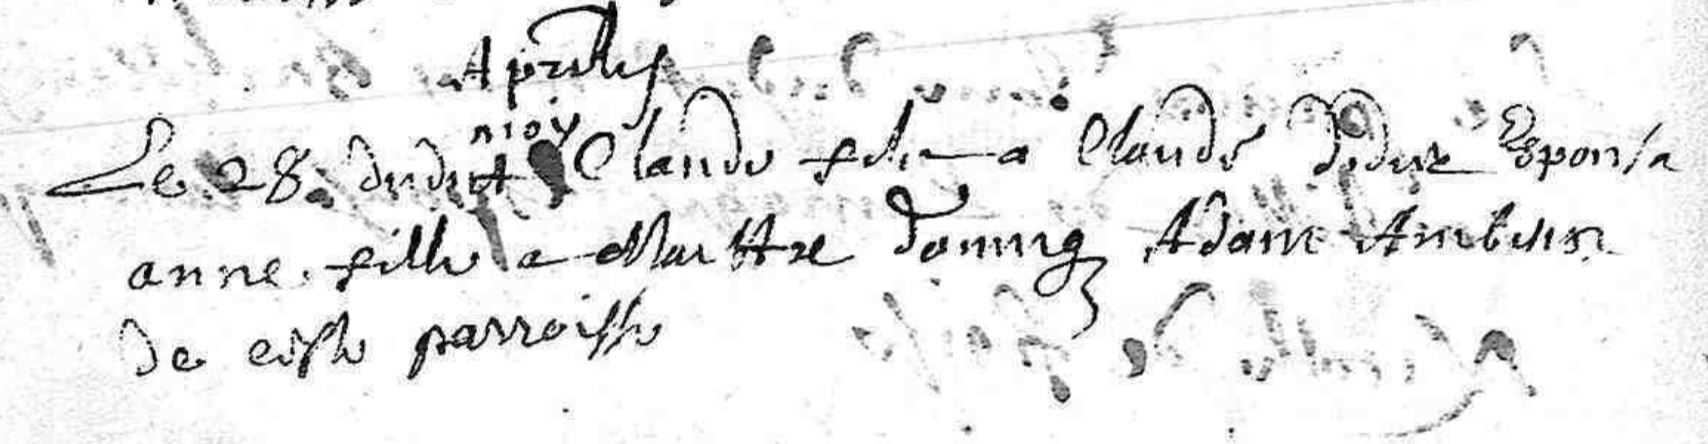 Aprilis
Le 28 dudit moy Claude filz a Claude Espousa
anne fille a Maitre Adam
de ceste parroisse